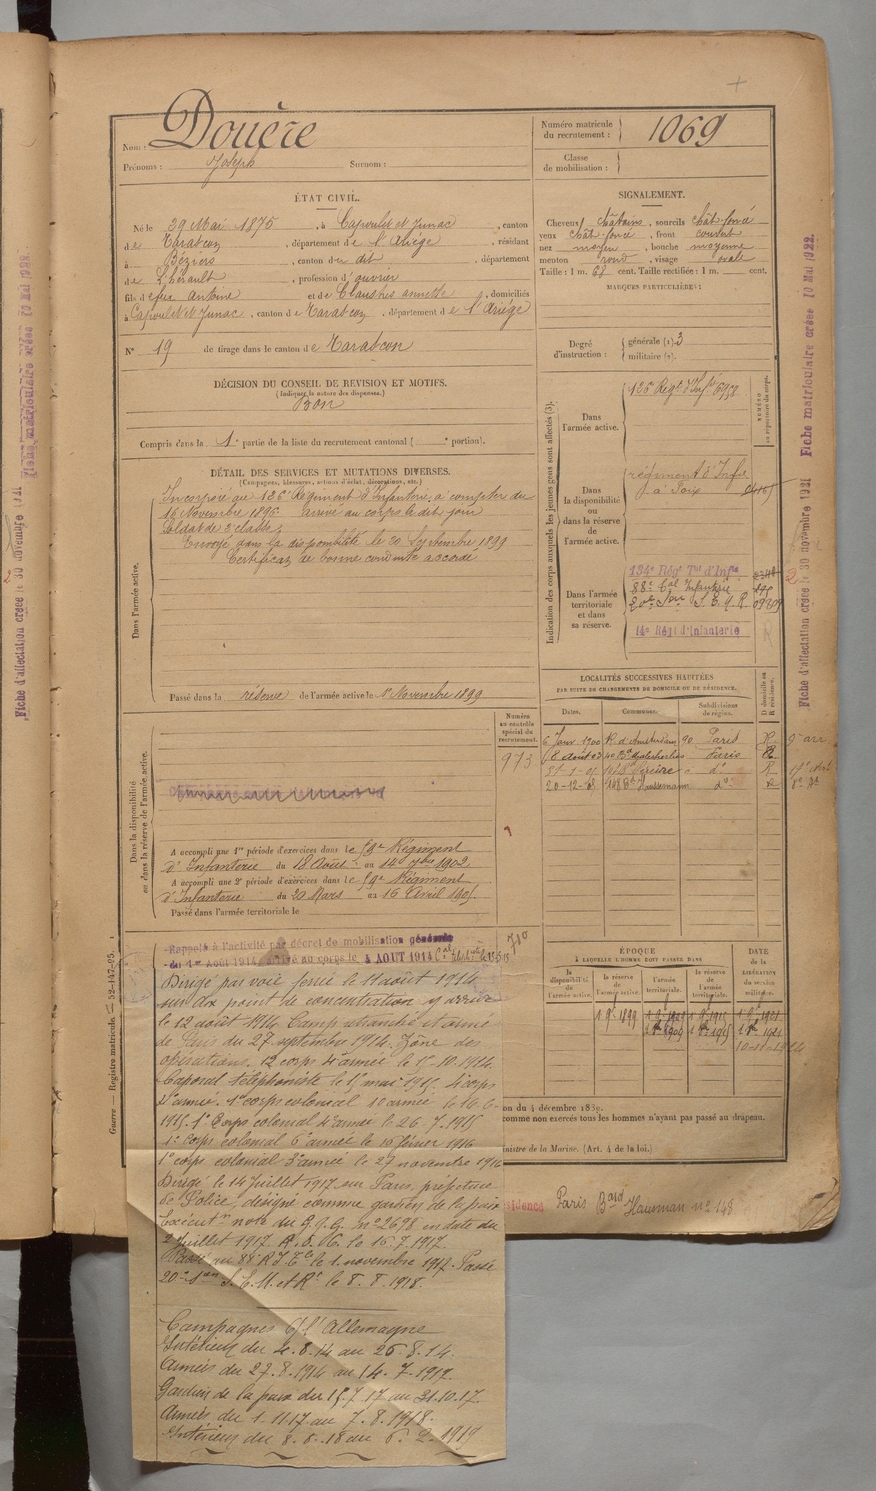 Nom : Douère
Prénoms : Joseph Surnom :
Numéro matricule du recrutement : 1069
Classe de mobilisation :
ÉTAT CIVIL.
Né le 29 Mai 1875, à Capoulet et Junac, canton
de Tarascon, département de l'Ariège, résidant
à Béziers, canton du dit, département
de l'hérault, profession d'ouvrier
fils de feu Antoine et de Claustres annette, domiciliés
à Capoulet et Junac, canton de Tarascon, département de l'Ariège
N° 19 de tirage dans le canton de Tarascon
SIGNALEMENT.
Cheveux châtains, sourcils chât. foncé
yeux chât. foncé, front couvert
nez moyen, bouche moyenne
menton rond, visage ovale
Taille : 1 m. 68 cent. Taille rectifiée : 1 m. cent.
MARQUES PARTICULIÈRES :
Degré d'instruction : générale (1) 3
militaire (2).
DÉCISION DU CONSEIL DE REVISION ET MOTIFS.
(Indiquer la nature des dispenses.)
Bon
Compris dans la 1e partie de la liste du recrutement cantonal ( e portion).
DÉTAIL DES SERVICES ET MUTATIONS DIVERSES.
(Campagnes, blessures, actions d'éclat, décorations, etc.)
Dans l'armée active.
Incorporé au 126e Régiment d'Infanterie, à compter du
16 Novembre 1896 arrivé au corps le dit jour
Soldat de 2e classe.
Envoyé dans la disponibilité le 20 Septembre 1899
Certificat de bonne conduite accordé
Passé dans la réserve de l'armée active le 1er Novembre 1899
Indication des corps auxquels les jeunes gens sont affectés (3).
NUMÉRO au répertoire du corps.
Dans l'armée active. 126e Régt d'Infie
Dans la disponibilité ou dans la réserve de l'armée active. régiment d'Infie
à Foix
Dans l'armée territoriale et dans sa réserve. 134e Régt Tal d'Infie
88e Cal Infanterie
20e Son S.E.M.R.
14e Régt d'Infanterie
LOCALITÉS SUCCESSIVES HABITÉES
PAR SUITE DE CHANGEMENTS DE DOMICILE OU DE RÉSIDENCE.
Dates. Communes. Subdivisions de région. D domicile ou R résidence.
6 Janv. 1900 R. d'Amsterdam 90 Paris R 9e arr
18 août 03 40 Bd Malesherbes Paris R
R 17e
20-12- 148 Bd Haussmann do R 8e
Dans la disponibilité ou dans la réserve de l'armée active.
Numéro au contrôle spécial du recrutement.
973
A accompli une 1re période d'exercices dans le 59e Régiment
d'Infanterie du 18 Août au 14 7bre 1902
A accompli une 2e période d'exercices dans le 59e Régiment
d'Infanterie du 20 Mars au 16 Avril 1905
Passé dans l'armée territoriale le
ÉPOQUE
À LAQUELLE L'HOMME DOIT PASSER DANS
la disponibilité de l'armée active. la réserve de l'armée active. l'armée territoriale. la réserve de l'armée territoriale.
DATE de la LIBÉRATION du service militaire.
Rappelé à l'activité par décret de mobilisation générale
du 1er Août 1914, arrivé au corps le 4 AOUT 1914
Dirigé par voie ferrée le 11 août 1914
sur dix point de concentration y arrivé
le 12 août 1914. Camp retranché et armé
de Paris du 27 septembre 1914. Zône des
opérations. 12 corps 4e armée le 15-10-1914.
Caporal téléphoniste le 15 mai 1915. 4e corps
2e armée. 1e corps colonial 10 armée le 16-6-
1915. 1e Corps colonial 4e armée le 26.7.1915
1e corps colonial 6e armée le 10 février 1916
1e corps colonial 3e armée le 27 novembre 1916
Dirigé le 14 Juillet 1917 sur Paris, préfecture
de Police, désigné comme gardien de la paix
Exécution note du G.Q.G. no 2698 en date du
2 Juillet 1917. le 15.7.1917.
Passé au 88e R.I.Te le 1 novembre 1917. Passé
20e Son S.E.M. et Re le 8.8.1918.
Campagnes C/ l'Allemagne
Intérieur du 4.8.14 au 26.8.14.
Armées du 27.8.1914 au 14.7.1917.
Gardien de la paix du 15.7.17 au 31.10.17.
Armées du 1.11.17 au 7.8.1918.
Intérieur du 8.8.18 au 6.2.1919
ion du 4 décembre 1889.
comme non exercés tous les hommes n'ayant pas passé au drapeau.
inistre de la Marine. (Art. 4 de la loi.)
ésidence Paris Bard Hausman no 148
Guerre — Registre matricule 52-147-95.
Fiche d'affectation créée le 30 novembre 1921
Fiche matriculaire créée 10 Mai 1922.